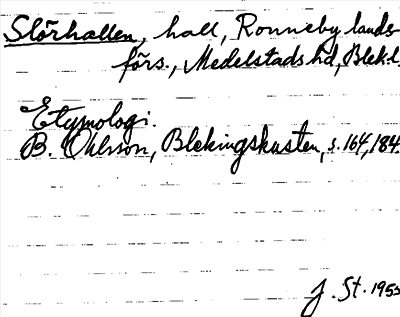 Slörhallen, hall, Ronneby lands-
förs., Medelstads hd, Blek. l.
Etymologi.
B. Ohlsson, Blekingskusten, s. 164, 184.
J. St. 1955